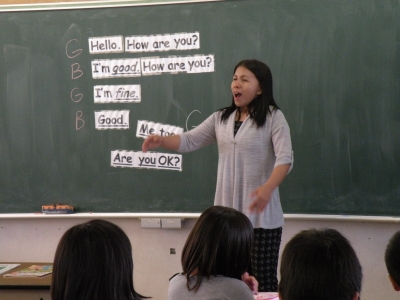 G Hello. How are you?
B I'm good. How are you?
G I'm fine.
B Good.
Me too.
Are you OK?